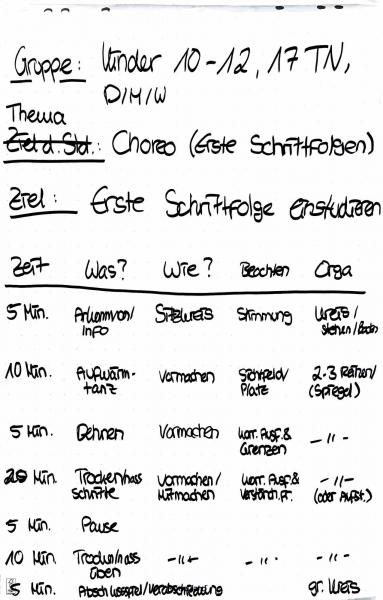 Gruppe: Kinder 10-12, 17 TN,
D/M/W
Thema
Ziel d. Std.: Choreo (Erste Schrittfolgen)
Ziel: Erste Schrittfolge einstudieren
Zeit Was? Wie? Beachten Orga
5 Min. Ankommen/ Info Sitzkreis Stimmung Kreis/ Stehen/Boden
10 Min. Aufwärm- tanz Vormachen Sichtfeld/ Platz 2-3 Reihen/ (Spiegel)
5 Min. Dehnen Vormachen korr. Ausf. & Grenzen -"-
20 Min. Trocken/nass Schritte Vormachen/ Mitmachen korr. Ausf. & Verständn. Fr. -"- (oder Aufst.)
5 Min. Pause
10 Min. Trocken/nass üben -"- -"- -"-
5 Min. Abschlussspiel/Verabschiedung gr. Kreis